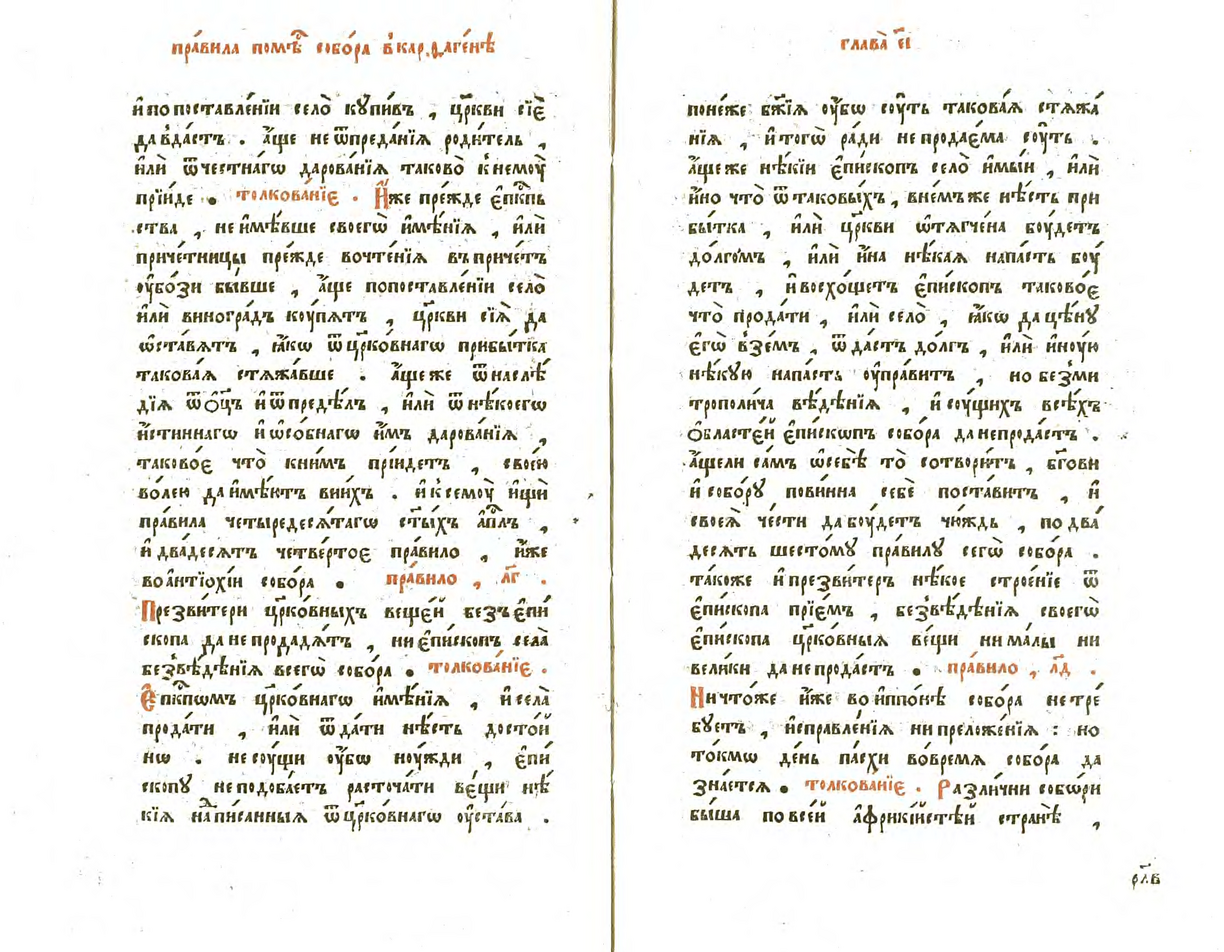 пра́вила помѣ́ собо́ра в̾кар.ѳаге́нѣ
и҆ по поставле́нїи село̀ кꙋпи́въ , цр҃кви сїѐ
да в̾да́стъ . а҆́ще не ѿпреда́нїѧ роди́тель ,
и҆лѝ ѿчестна́гѡ дарова́нїѧ таково̀ к̾немоу̀
прїи́де . толкова́нїе . И҆́же пре́жде є҆пкпⷭ҇ь
ства , не и҆мѣ́вше своегѡ̀ и҆мѣ́нїѧ , и҆лѝ
приче́тницы пре́жде вочте́нїѧ въ приче́тъ
оу҆бо́зи бы́вше , а҆́ще попоставле́нїи село̀
и҆лѝ виногра́дъ коу́пѧтъ , цр҃кви сїѧ̀ да
ѡ҆ста́вѧтъ , ꙗ҆́кѡ ѿ цр҃ко́внагѡ прибы́тка
такова́ѧ стѧжа́вше . а҆́ще же ѿ наслѣ́
дїѧ ѿ ѻ҆ц҃ъ и҆ ѿ предѣ́лъ , и҆лѝ ѿ нѣ́коегѡ
и҆́стиннагѡ и҆ ѡ҆со́бнагѡ и҆̀мъ дарова́нїѧ ,
таково́е что̀ кни́мъ прїи́детъ , свое́ю
во́лею да и҆мѣ́ютъ вни́хъ . и҆ к̾семоу̀ и҆щѝ
пра́вила четыредесѧ́тагѡ ст҃ы́хъ а҆пⷭ҇лъ ,
и҆ два́десѧтъ четве́ртое пра́вило , и҆́же
во а҆нтїохі́и собо́ра . пра́вило , л҃г .
Презви́тери цр҃ко́вныхъ веще́й без̾ є҆пи
скопа да не продадѧ́тъ , ни є҆пи́скопъ села̀
без̾вѣ́дѣнїѧ всегѡ̀ собо́ра . толкова́нїе .
Є҆пкпⷭ҇ѡмъ цр҃ко́внагѡ и҆мѣ́нїѧ , и҆ села̀
прода́ти , и҆лѝ ѿда́ти нѣ́сть досто́й
нѡ . не соу́щи оу҆́бѡ ноу́жди , є҆пи
скопꙋ не подоба́етъ расточа́ти ве́щи нѣ́
кїѧ на́писанныѧ ѿ цр҃ко́внагѡ оу҆ста́ва .
глава̀ є҃і
поне́же бж҃їѧ оу҆́бѡ соу́ть такова́ѧ стѧжа́
нїѧ , и҆ тогѡ̀ ра́ди не продае́ма соу́ть .
а҆́ще же нѣ́кїи є҆пи́скопъ село̀ и҆мы́и , и҆лѝ
и҆́но что̀ ѿ таковы́хъ , внемъ же нѣ́сть при
бы́тка , и҆лѝ цр҃кви ѡ҆тѧгче́на боу́детъ
до́лгомъ , и҆лѝ и҆́на нѣ́каѧ напа́сть боу́
детъ , и҆ восхо́щетъ є҆пи́скопъ таково́е
что̀ прода́ти , и҆лѝ село̀ , ꙗ҆́кѡ да цѣ́нꙋ
є҆гѡ̀ в̾зе́мъ , ѿда́стъ до́лгъ , и҆лѝ и҆ноу́ю
нѣ́кꙋю напа́сть оу҆пра́витъ , но без̾ми
трополи́ча вѣ́дѣнїѧ , и҆ соу́щихъ всѣ́хъ
ѻ҆бласте́й є҆пи́скѡпъ собо́ра да не прода́стъ .
а҆́щели са́мъ ѡ҆себѣ̀ то̀ сотвори́тъ , бг҃ови
и҆ собо́рꙋ пови́нна себѐ поста́витъ , и҆
своеѧ̀ че́сти да боу́детъ чю́ждь , по два́
десѧть шесто́мꙋ пра́вилꙋ сегѡ̀ собо́ра .
та́коже и҆ презви́теръ нѣ́кое строе́нїе ѿ
є҆пи́скопа прїе́мъ , без̾вѣ́дѣнїѧ своегѡ̀
є҆пи́скопа цр҃ко́выѧ ве́щи ни ма́лы ни
вели́ки да не прода́стъ . пра́вило , л҃д .
Ничто́же и҆́же во и҆ппо́нѣ собо́ра не тре́
бꙋетъ , и҆справле́нїѧ ни преложе́нїѧ : но
то́кмѡ де́нь па́схи во́времѧ собо́ра да
зна́етсѧ . толкова́нїе . Разли́чни собо́ри
бы́ша по все́й а҆фрикі́йстѣй странѣ̀ ,
рл҃в